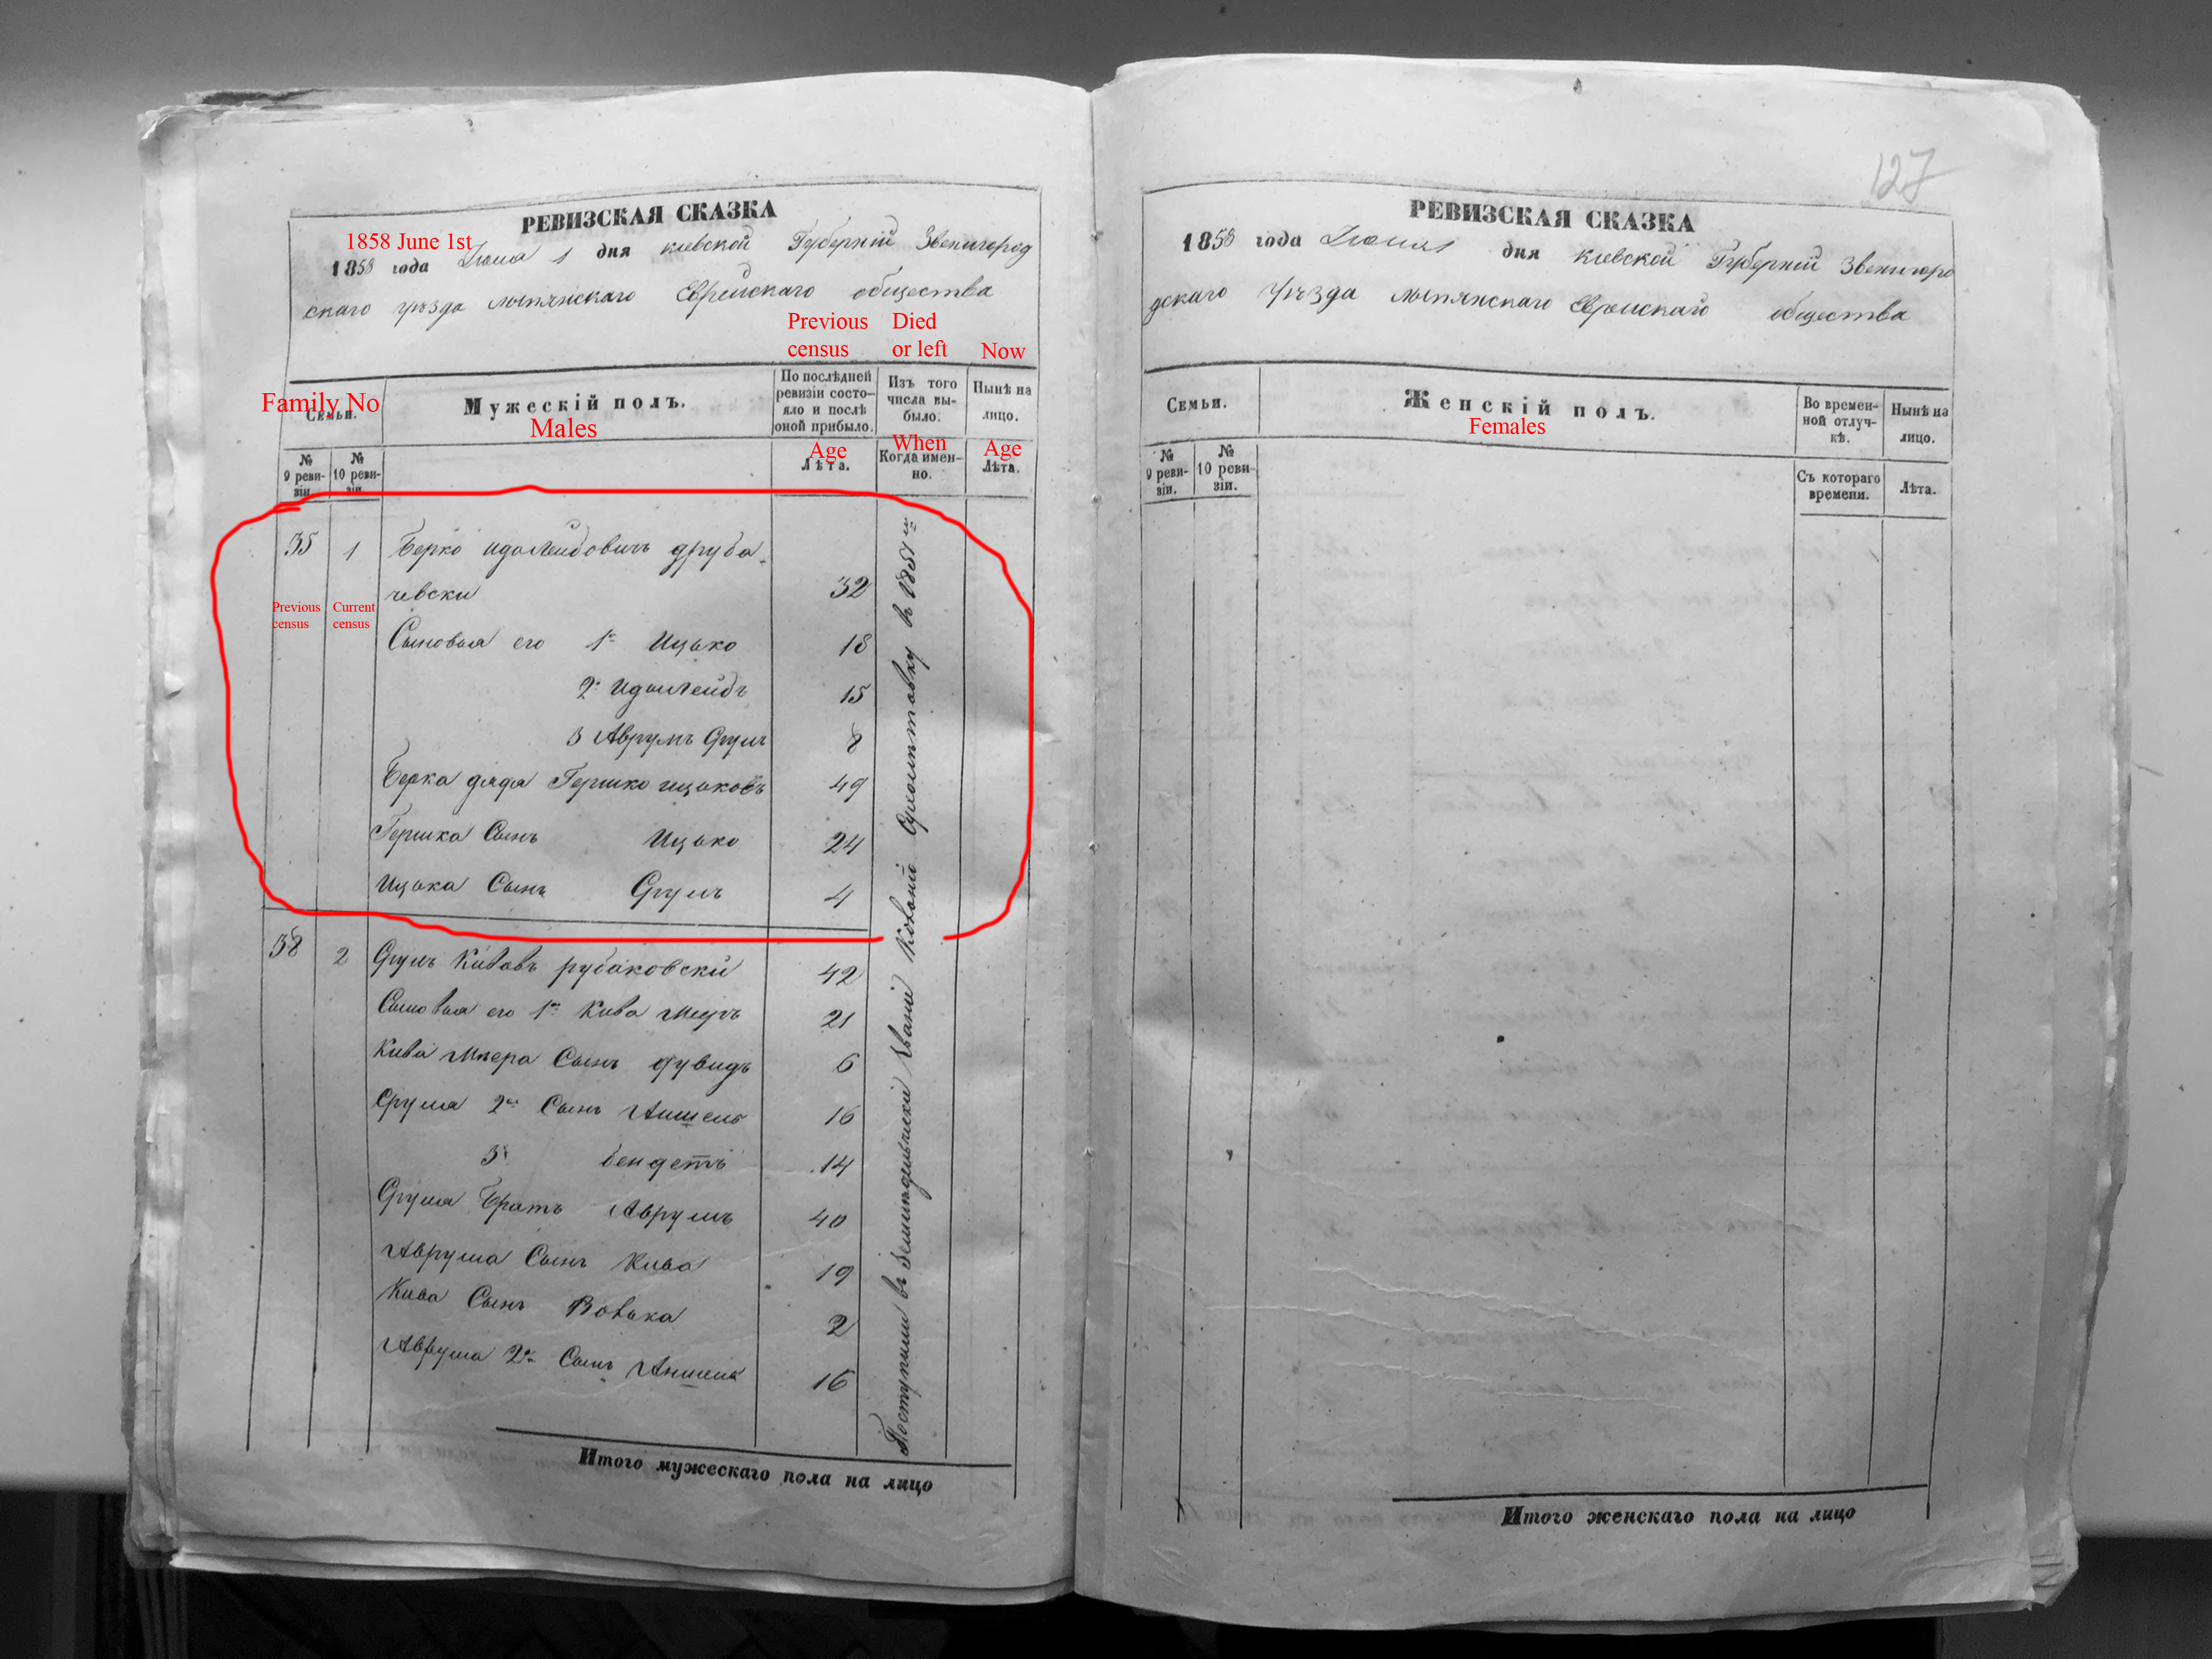 РЕВИЗСКАЯ СКАЗКА
1858 June 1st
1858 года Июня 1 дня киевской Губерніи Звенигород
скаго уѣзда лысянскаго Еврейскаго общества
Previous census
Died or left
Now
Family No
Семьи.
Мужескій полъ.
Males
По послѣдней ревизіи состояло и послѣ оной прибыло.
Изъ того числа выбыло.
Нынѣ на лицо.
Age
When
Age
№ 9 ревизіи.
№ 10 ревизіи.
Лѣта.
Когда именно.
Лѣта.
35 1 Берко Идолейбовичъ друба
чевски 32
Previous census
Current census
Сыновья его 1й Ицько 18
2й Идольлейбъ 15
3 Аврумъ Сруль 8
Берка дядя Гершко ицьковъ 49
Гершка Сынъ Ицько 24
Ицька Сынъ Сруль 4
58 2 Сруль Кивовъ рубаковски 42
Сыновья его 1й Кива Мееръ 21
Кива Меера Сынъ дувидъ 6
Сруля 2й Сынъ Аншель 16
3й бендетъ 14
Сруля Братъ Аврумъ 40
Аврума Сынъ Кива 19
Кива Сынъ Вовька 2
Аврума 2й Сынъ Аншель 16
Поступили въ Земледельчески Званій Колоній в 1851 м
Итого мужескаго пола на лицо
127
РЕВИЗСКАЯ СКАЗКА
1858 года Июня 1 дня киевской Губерніи Звенигоро
дскаго уѣзда лысянскаго Еврейскаго общества
Семьи.
Женскій полъ.
Females
Во временной отлучкѣ.
Нынѣ на лицо.
№ 9 ревизіи.
№ 10 ревизіи.
Съ котораго времени.
Лѣта.
Итого женскаго пола на лицо